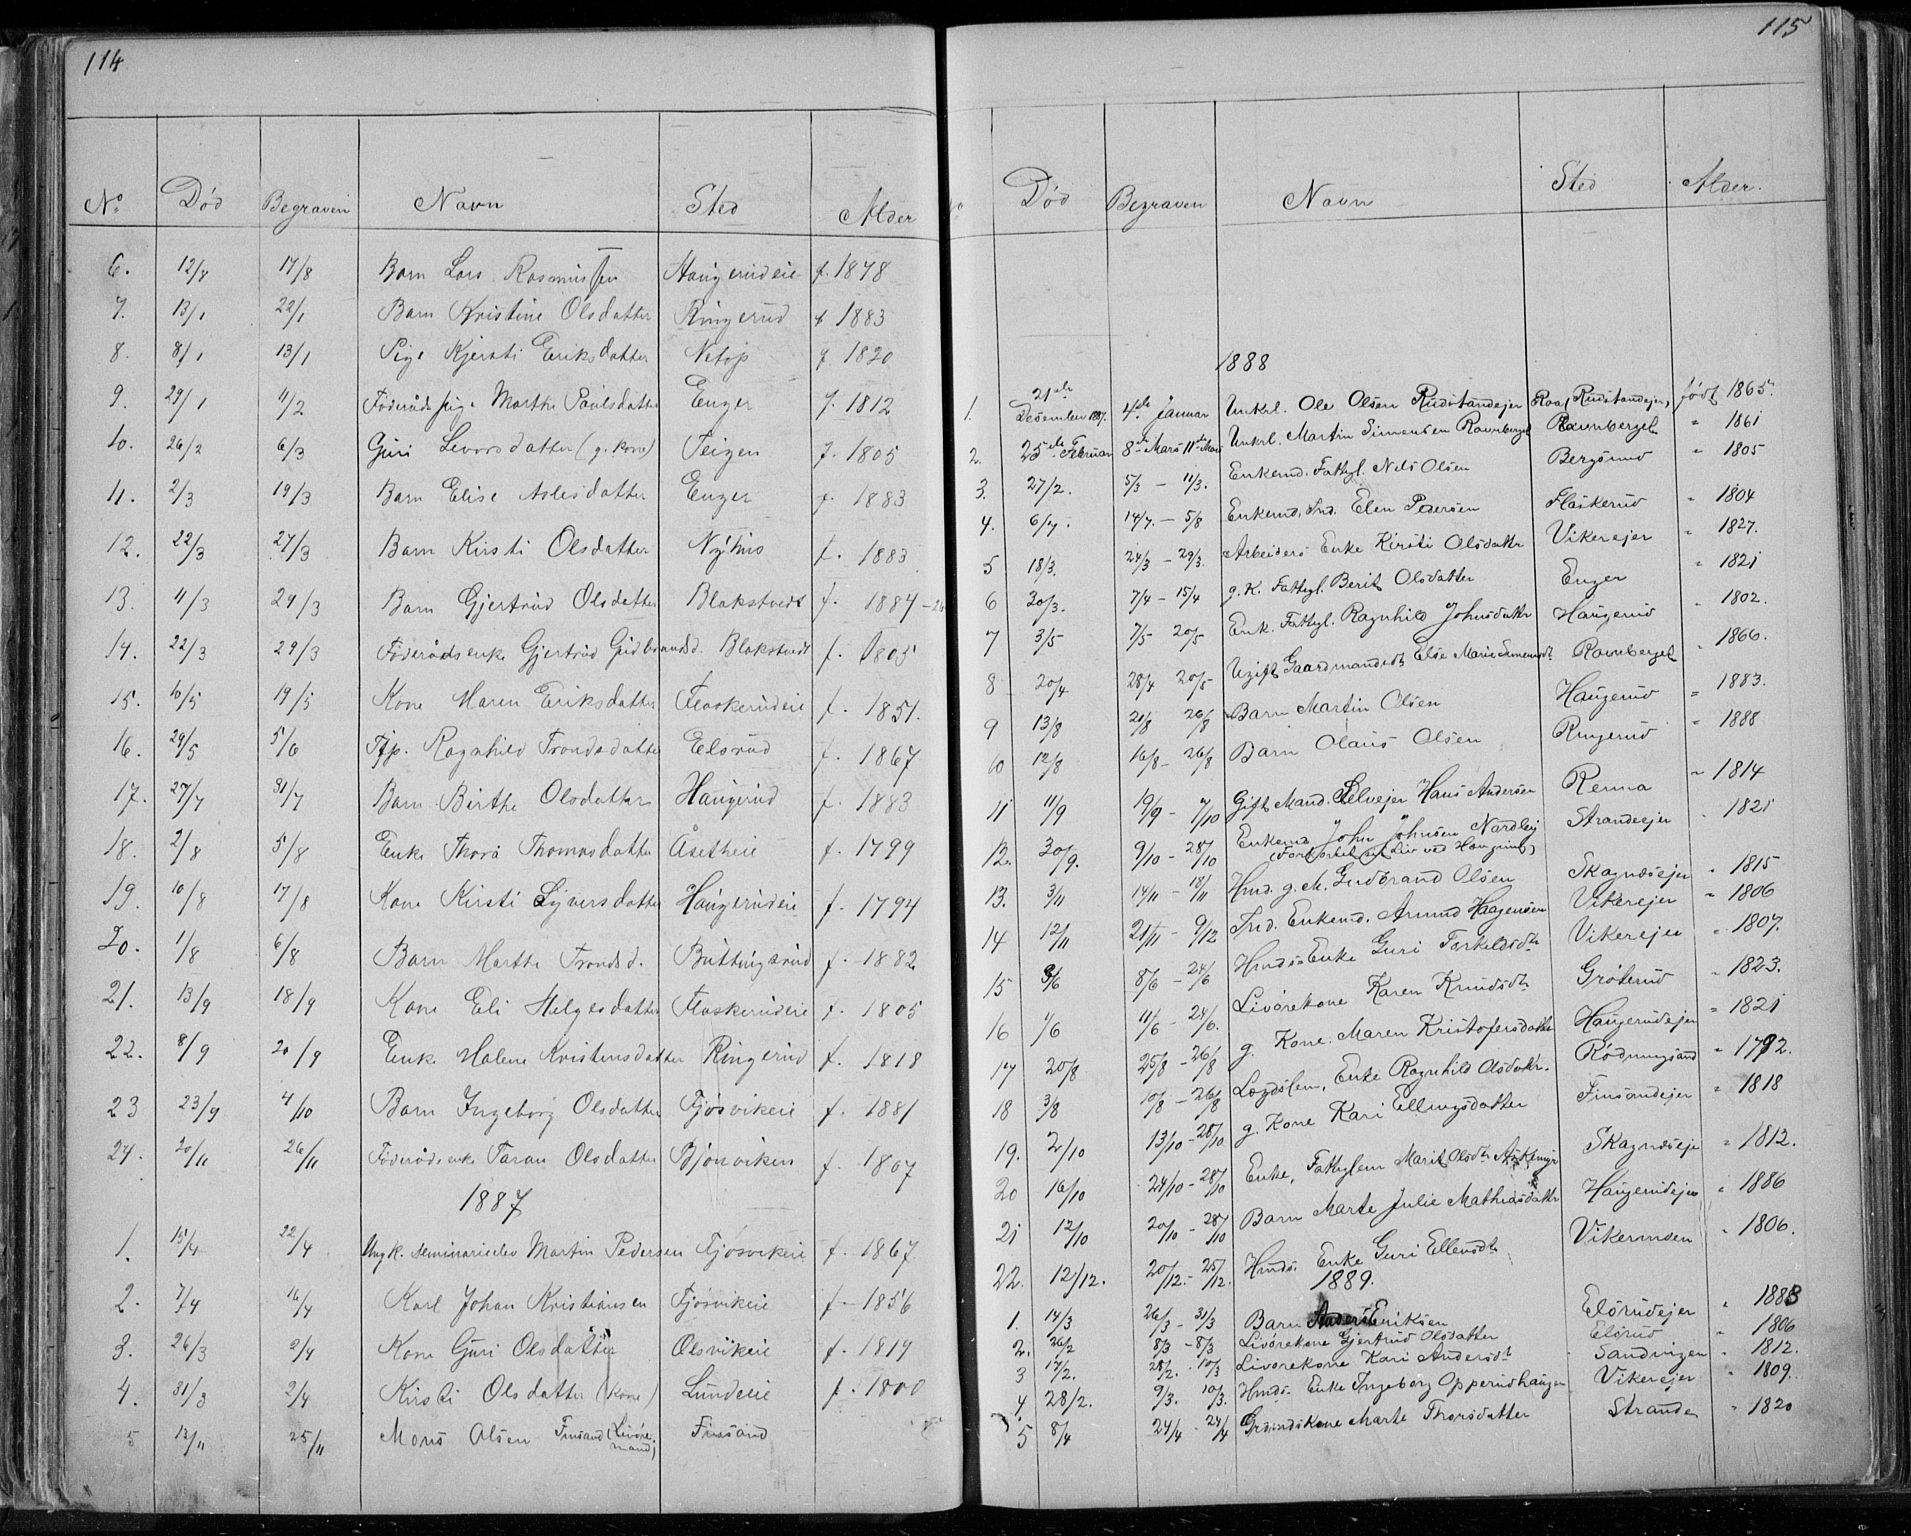 114
No Død Begraven Navn Sted Alder
6. 12/8 17/8 Barn Lars Rasmussen Haugerudeie f. 1878
7. 13/1 22/1 Barn Kristine Olsdatter Ringerud f 1883
8. 8/1 13/1 Pige Kjersti Eriksdatter f 1820
9. 29/1 11/2 Föderåds pige Marthe Paulsdatter Enger f. 1812
10. 26/2 6/3 Guri Levorsdatter (g. kone) Teigen f. 1805
11. 2/3 19/3 Barn Elise Aslesdatter Enger f. 1883
12. 22/3 27/3 Barn Kirsti Olsdatter f. 1883
13. 11/3 29/3 Barn Gjertrud Olsdatter Blakstvedt f. 1884
14. 22/3 29/3 Föderådsenke Gjertrud Gudbrandsd. Blakstvedt f. 1805
15. 10/5 19/5 Kone Maren Eriksdatter Flaskerudeie f. 1851.
16. 29/5 5/6 Ffp. Ragnhild Trondsdatter Elsrud f. 1867
17. 27/7 31/7 Barn Birthe Olsdatter Haugerud f. 1883
18. 2/8 5/8 Enke Thora Thomasdatter Åsetheie f. 1799
19. 10/8 17/8 Kone Kirsti Syversdatter Haugerudeie f. 1794
20. 1/8 6/8 Barn Marthe Trondsd. Buttingsrud f. 1882
21. 13/9 18/9 Kone Eli Helgesdatter Flaskerudeie f. 1805
22. 8/9 20/9 Enke Halene Kristensdatter Ringerud f. 1818
23 23/9 4/10 Barn Ingeborg Olsdatter Tjøsvikeie f. 1881
24. 20/11 26/11 Föderådsenke Taran Olsdatter Bjönviken f. 1807
1887
1. 15/4 22/4 Ungk. Seminarieelev Martin Pedersen Tjøsvikeie f. 1867
2. 7/4 16/4 Karl Johan Kristiansen Tjøsvikeie f. 1856
3. 26/3 2/4 Kone Guri Olsdatter Olsvikeie f. 1819
4. 31/3 2/4 Kirsti Olsdatter (Kone) Lundeie f. 1800
5 13/11 25/11 Mons Olsen Finsand (Livøremand) Finsand
115
No Død Begraven Navn Sted Alder.
1888
1. 21de Desember 1887. 4de Januar Unkrl. Ole Olsen Rudstandejer Roa, Rudstandejer, født 1865.
2. 25de Februar 8de Mars 11te Mars Unkrl. Martin Simensen Ravnberget Ravnberget " 1861
3. 27/2. 5/3 - 11/3. Enkemd. Fattgl. Nils Olsen Bergsund " 1805
4. 6/7. 14/7. - 5/8 Enkemd. Ind. Elen Pedersen Flaskerud " 1804
5 18/3. 24/3 - 29/3. Arbeiders Enke Kirsti Olsdattr Vikerejer " 1827.
6 30/3. 7/4 - 15/4 g. K. Fattgl. Berit Olsdatter Enger " 1821
7 3/5 7/5 20/5 Enk. Fattgl. Ragnhild Johnsdattr Haugerud " 1802.
8 20/4 28/4 20/5 Ugift Gaardmandsdt. Else Marie Simensdt. Ravnberget " 1866.
9 13/8 21/8 26/8 Barn Martin Olsen Haugerud " 1883.
10 12/8 16/8 - 26/8 Barn Olaus Olsen Ringerud " 1888
11 11/9 19/9 - 7/10 Gift Mand. Selvejer Hans Andersen Renna " 1814
12. 30/9. 9/10 - 28/10 Enkemd John Johnsen Nardby Strandeejer " 1821
(Forkortet sit Liv ved Hængning)
13. 3/11 14/11 - 18/11 Hmd. g. M. Gudbrand Olsen Skagnæsejer " 1815
14 12/11 21/11 - 9/12 Ind. Enkemd. Amund Haagensen Vikerejer " 1806
15 3/6 8/6 - 24/6 Hmds Enke Guri Torkildsdtr Vikerejer " 1807.
16 1/6 11/6 - 24/6. Livørekone Karen Knudsdtr Grøterud " 1823.
17 20/8 25/8 - 26/8 g. Kone. Maren Kristofersdatter Haugerudejer " 1821
18 3/8 10/8 - 26/8 Lægdslem, Enke Ragnhild Olsdattr. Rødningsand " 1792.
19. 2/10 13/10 - 28/10 g. Kone Kari Ellingsdatter Finsandejer " 1818
20 16/10 24/10 - 28/10 Enke, Fattiglem Marit Olsdtr Skagnæseje " 1812.
21 12/10 20/10 - 28/10 Barn Marte Julie Mathiasdattr Haugerudejer " 1886
22. 12/12. 20/12. - 25/12. Hmds. Enke Guri Ellensdtr Vikermoen " 1806.
1889.
1. 14/3 26/3 - 31/3 Barn Anders Eriksen Elsrudejer " 1883
2. 26/2 8/3 - 8/3 Livørekone Gjertrud Olsdatter Elsrud " 1806
3 17/2. 28/2. 10/3 Livørekone Kari Andersdtr Sandvigen " 1812.
4 28/2. 9/3. 10/3. Hmds. Enke Ingeborg Opperudhaugen Vikerejer " 1809.
5 8/4 24/4 - 24/4 Grsmdskone Marte Thorsdatter Strande " 1820